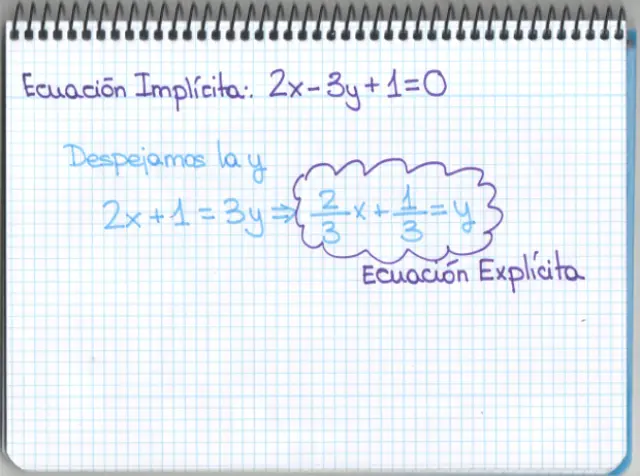 Ecuación Implícita: 2x-3y+1=0
Despejamos la y
2x+1=3y⇒ 2/3 x + 1/3 = y
Ecuación Explícita